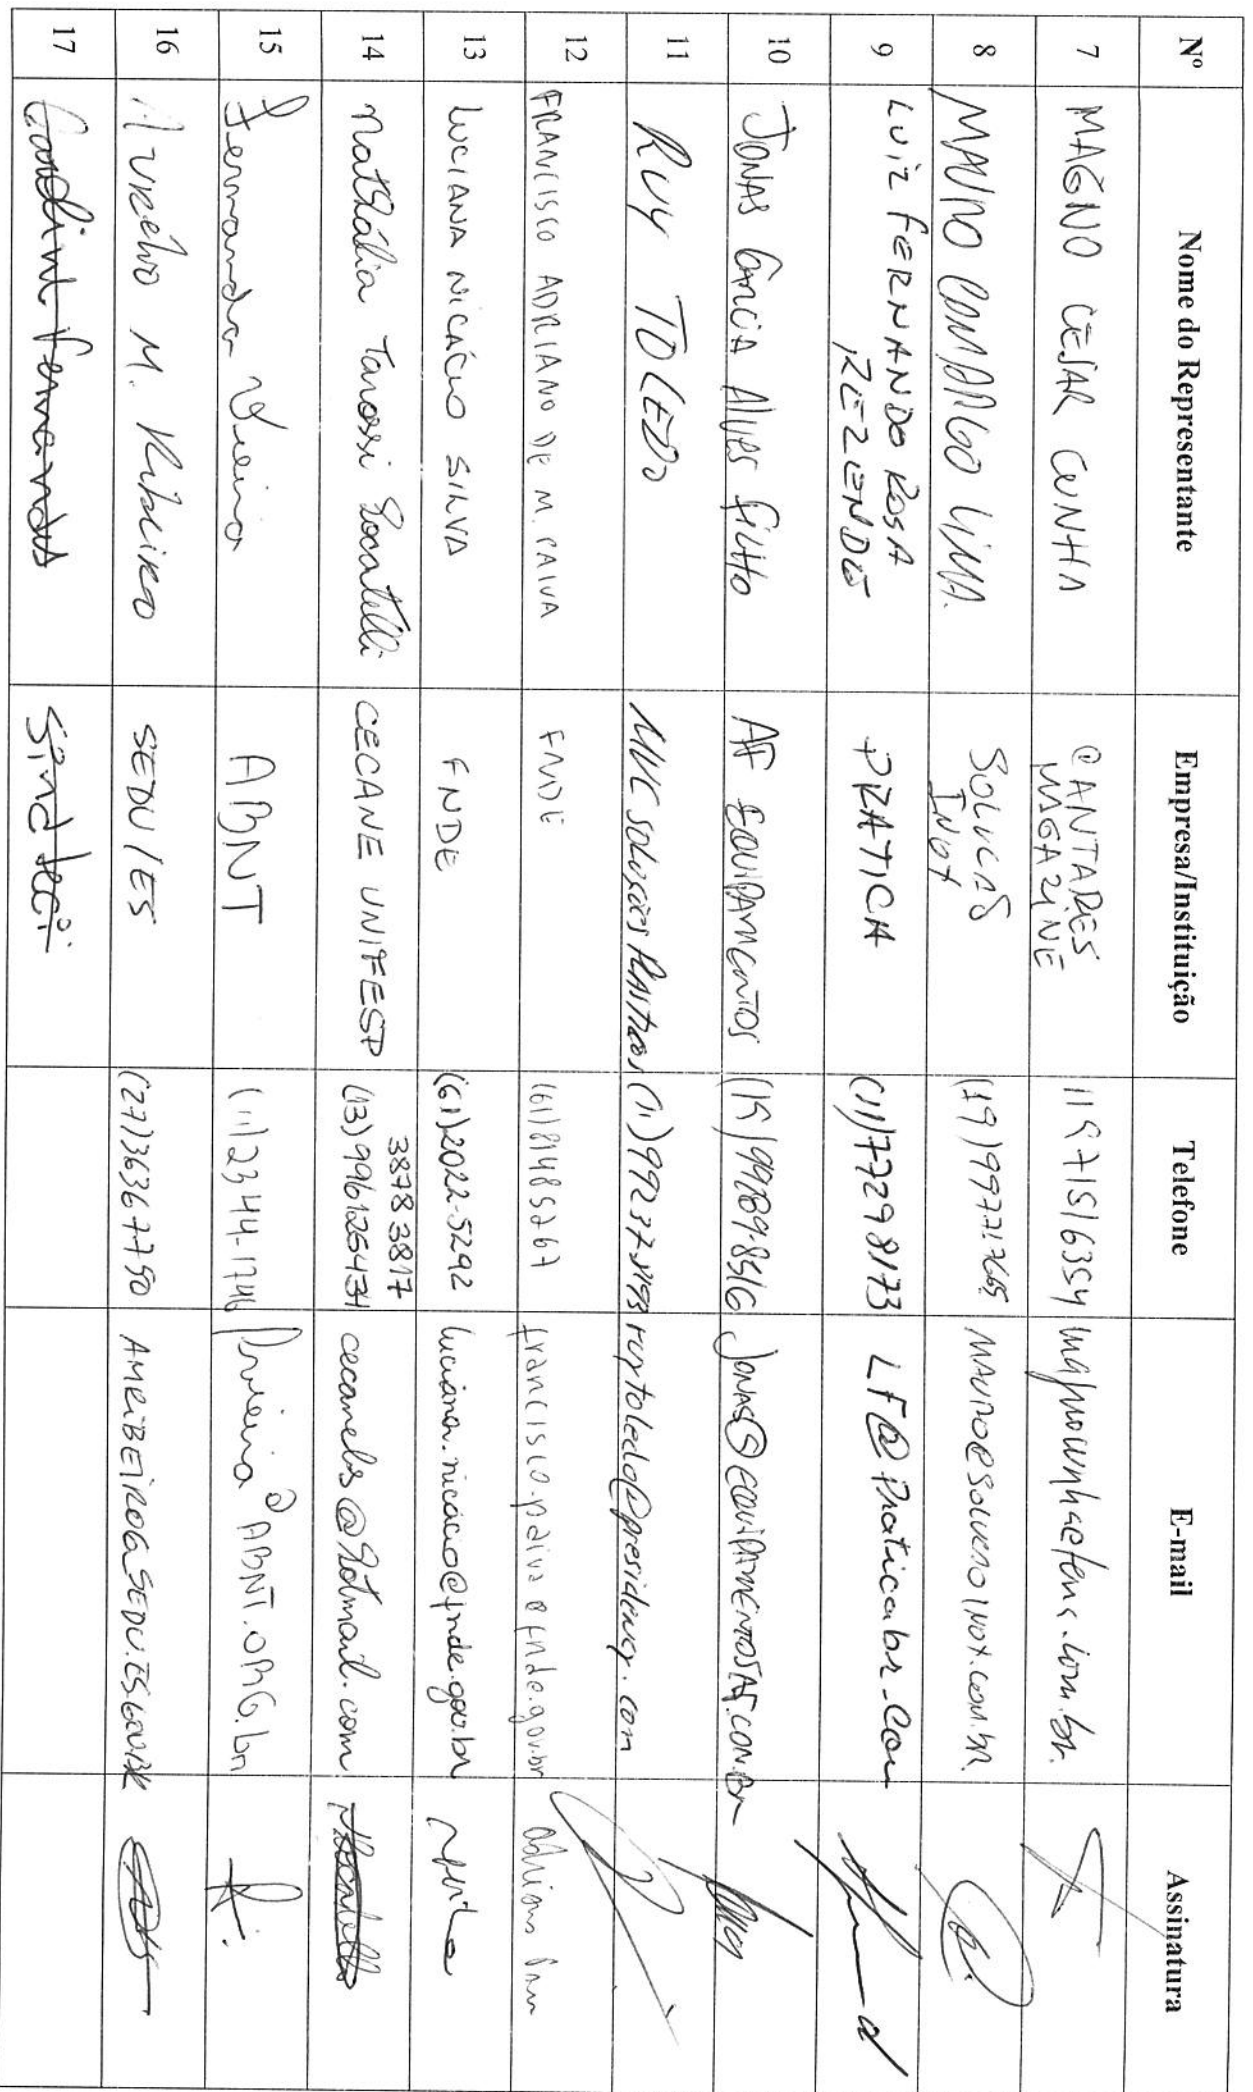 Nº Nome do Representante Empresa/Instituição Telefone E-mail Assinatura
7 MAGNO CESAR CUNHA CANTARES MAGAZINE 11 971516354
8 MAURO CAMARGO LIMA. SOLUCAO INOX (19) MAURO@SOLUCAOINOX.COM.BR
9 LUIZ FERNANDO ROSA REZENDE PRATICA (11)77298173 LF@Praticabr.Com
10 JONAS GARCIA ALVES FILHO AF EQUIPAMENTOS (19)99789-8516 JONAS@EQUIPAMENTOSAF.COM.BR
11 RUY TOLEDO MVC Soluções Plásticas (11) ruytoledo@presidency.com
12 FRANCISCO ADRIANO DE M. PAIVA FNDE (61)81485767 francisco.paiva@fnde.gov.br
13 LUCIANA NICÁCIO SILVA FNDE (61)2022-5292 luciana.nicacio@fnde.gov.br
14 Nathália Tarossi Locatelli CECANE UNIFESP 3878 3817 (13)996125431 cecanebs@hotmail.com
15 Fernanda Vieira ABNT (11)2344-1746 fvieira@ABNT.ORG.br
16 AURÉLIO M. RIBEIRO SEDU/ES (27)36367750 AMRIBEIRO@SEDU.ES.GOV.BR
17 Caroline Fernandes Sindteci